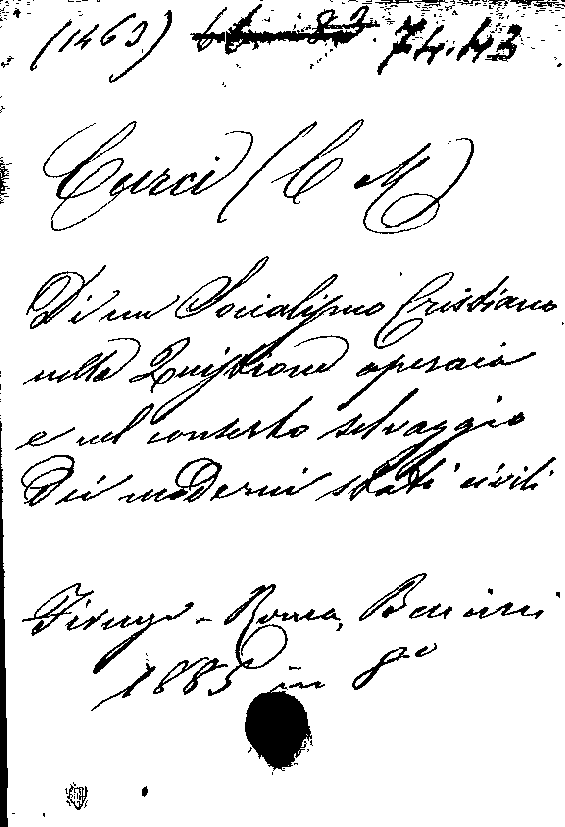 (1463) 74.43
Curci (C M)
Di un Socialismo Cristiano
nella Quistione operaia
e nel conserto selvaggio
Dei moderni stati civili
Firenze - Roma, Bencini
1885 in 8º